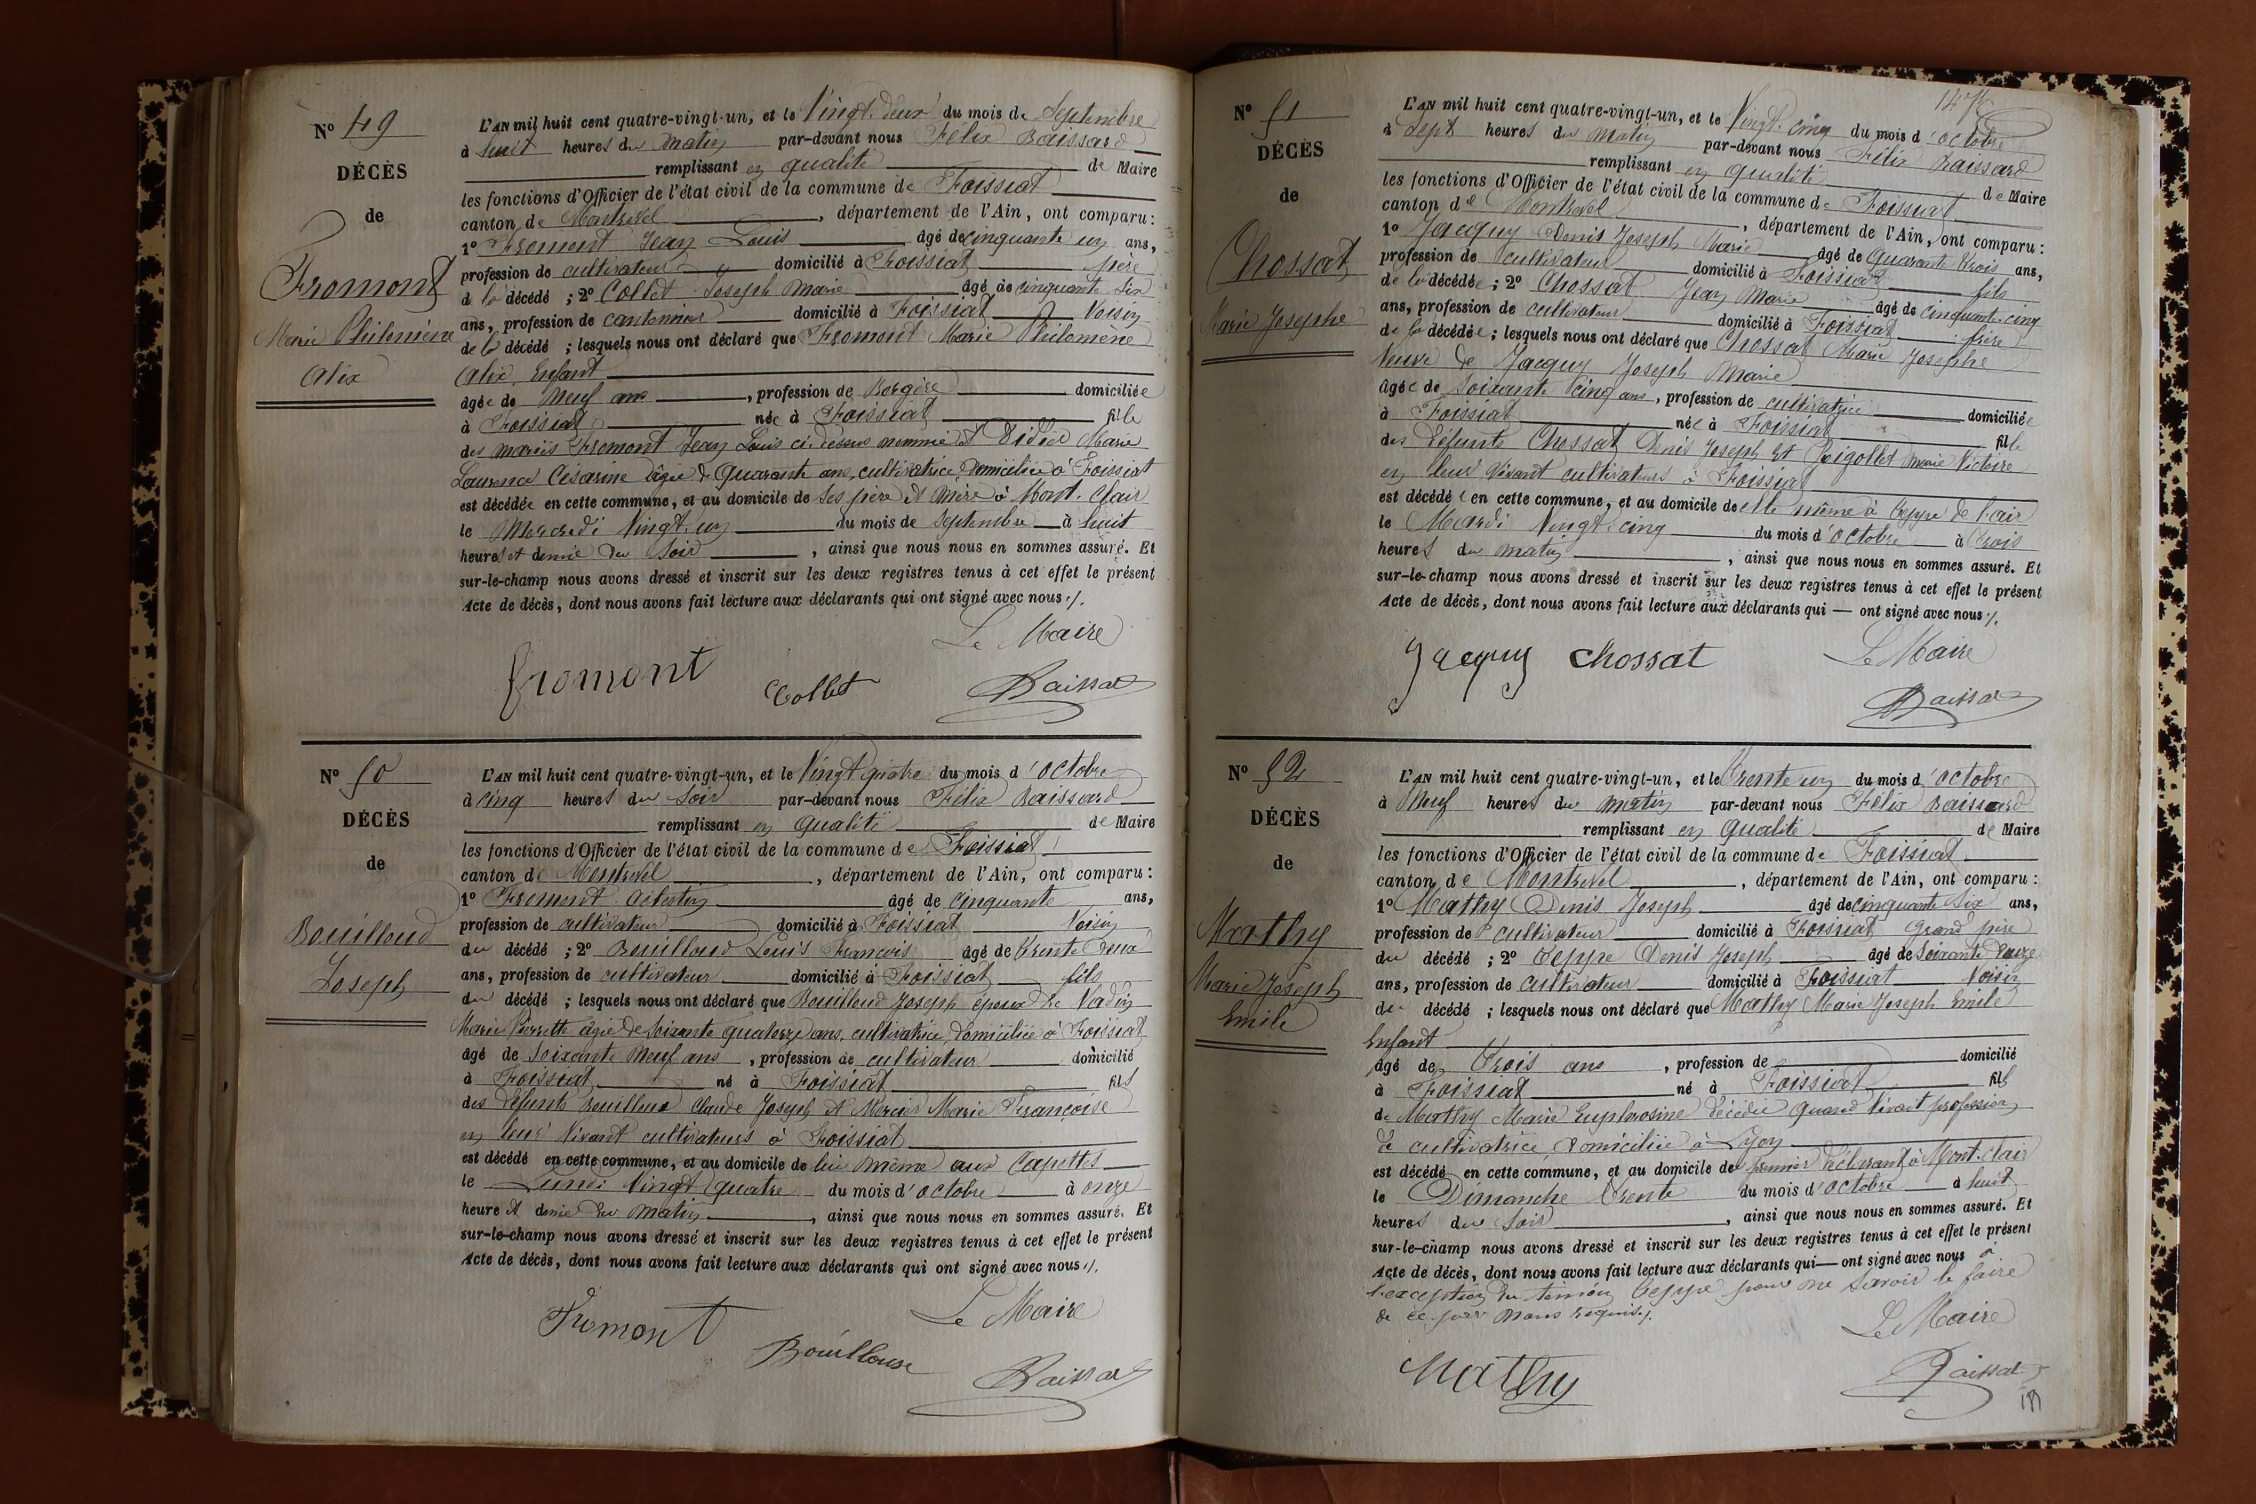 N° 49
DÉCÈS
de
Fromont
Marie Philomène
Alix
L'AN mil huit cent quatre-vingt-un, et le Vingt deux du mois de Septembre
à huit heures du matin par-devant nous Félix Baissard
remplissant en qualité de Maire
les fonctions d'Officier de l'état civil de la commune de Foissiat
canton de Montrevel, département de l'Ain, ont comparu :
1° Fromont Jean Louis âgé de cinquante un ans,
profession de cultivateur domicilié à Foissiat père
de la décédé ; 2° Collet Joseph Marie âgé de cinquante six
ans, profession de cantonnier domicilié à Foissiat Voisin
de la décédé ; lesquels nous ont déclaré que Fromont Marie Philomène
Alix, Enfant
âgée de Neuf ans, profession de Bergère domiciliée
à Foissiat née à Foissiat fille
des mariés Fromont Jean Louis ci-dessus nommé et Didier Marie
Laurence Césarine âgée de Quarante ans, cultivatrice, domiciliée à Foissiat
est décédée en cette commune, et au domicile de ses père et mère à Mont-Clair
le Mercredi Vingt-un du mois de Septembre à huit
heures et demie du soir, ainsi que nous nous en sommes assuré. Et
sur-le-champ nous avons dressé et inscrit sur les deux registres tenus à cet effet le présent
Acte de décès, dont nous avons fait lecture aux déclarants qui ont signé avec nous ./.
Le Maire
fromont Collet Baissard
N° 50
DÉCÈS
de
Bouilloud
Joseph
L'AN mil huit cent quatre-vingt-un, et le Vingt quatre du mois d'octobre
à cinq heures du soir par-devant nous Félix Baissard
remplissant en qualité de Maire
les fonctions d'Officier de l'état civil de la commune de Foissiat
canton de Montrevel, département de l'Ain, ont comparu :
1° Fromont Célestin âgé de cinquante ans,
profession de cultivateur domicilié à Foissiat Voisin
du décédé ; 2° Bouilloud Louis François âgé de trente deux
ans, profession de cultivateur domicilié à Foissiat fils
du décédé ; lesquels nous ont déclaré que Bouilloud Joseph époux de Vadin
Marie Pierrette âgée de soixante quatorze ans, cultivatrice, domiciliée à Foissiat
âgé de soixante neuf ans, profession de cultivateur domicilié
à Foissiat né à Foissiat fils
des défunts Bouilloud Claude Joseph et Mercier Marie Françoise
en leur vivant cultivateurs à Foissiat
est décédé en cette commune, et au domicile de lui même aux Capettes
le Lundi Vingt quatre du mois d'octobre à onze
heure et demie du matin, ainsi que nous nous en sommes assuré. Et
sur-le-champ nous avons dressé et inscrit sur les deux registres tenus à cet effet le présent
Acte de décès, dont nous avons fait lecture aux déclarants qui ont signé avec nous ./.
Le Maire
Fromont Bouilloud Baissard
N° 51
DÉCÈS
de
Chossat
Marie Josephe
L'AN mil huit cent quatre-vingt-un, et le Vingt-cinq du mois d'octobre
à Sept heures du matin par-devant nous Félix Baissard
remplissant en qualité de Maire
les fonctions d'Officier de l'état civil de la commune de Foissiat
canton de Montrevel, département de l'Ain, ont comparu :
1° Jacquy Denis Joseph Marie âgé de Quarante trois ans,
profession de cultivateur domicilié à Foissiat fils
de la décédée ; 2° Chossat Jean Marie âgé de cinquante-cinq
ans, profession de cultivateur domicilié à Foissiat frère
de la décédée ; lesquels nous ont déclaré que Chossat Marie Josephe
Veuve de Jacquy Joseph Marie
âgée de soixante cinq ans, profession de cultivatrice domiciliée
à Foissiat née à Foissiat fille
des défunts Chossat Denis Joseph et Goigollet Marie Victoire
en leur vivant cultivateurs à Foissiat
est décédée en cette commune, et au domicile de elle même à Teppe de l'air
le Mardi Vingt-cinq du mois d'octobre à trois
heures du matin, ainsi que nous nous en sommes assuré. Et
sur-le-champ nous avons dressé et inscrit sur les deux registres tenus à cet effet le présent
Acte de décès, dont nous avons fait lecture aux déclarants qui — ont signé avec nous ./.
Le Maire
Jacquy Chossat Baissard
N° 52
DÉCÈS
de
Mathy
Marie Joseph
Emile
L'AN mil huit cent quatre-vingt-un, et le trente un du mois d'octobre
à Neuf heures du matin par-devant nous Félix Baissard
remplissant en qualité de Maire
les fonctions d'Officier de l'état civil de la commune de Foissiat
canton de Montrevel, département de l'Ain, ont comparu :
1° Mathy Denis Joseph âgé de cinquante six ans,
profession de cultivateur domicilié à Foissiat Grand père
du décédé ; 2° Teppe Denis Joseph âgé de soixante douze
ans, profession de cultivateur domicilié à Foissiat Voisin
du décédé ; lesquels nous ont déclaré que Mathy Marie Joseph Emile
Enfant
âgé de trois ans, profession de domicilié
à Foissiat né à Foissiat fils
de Mathy Marie Euphrosine décédée quand vivait profession
de cultivatrice domiciliée à Lyon
est décédé en cette commune, et au domicile de premier déclarant à Mont-clair
le Dimanche trente du mois d'octobre à huit
heures du soir, ainsi que nous nous en sommes assuré. Et
sur-le-champ nous avons dressé et inscrit sur les deux registres tenus à cet effet le présent
Acte de décès, dont nous avons fait lecture aux déclarants qui — ont signé avec nous à
l'exception du témoin Teppe pour ne savoir le faire
de ce par nous requis ./.
Le Maire
Mathy Baissard